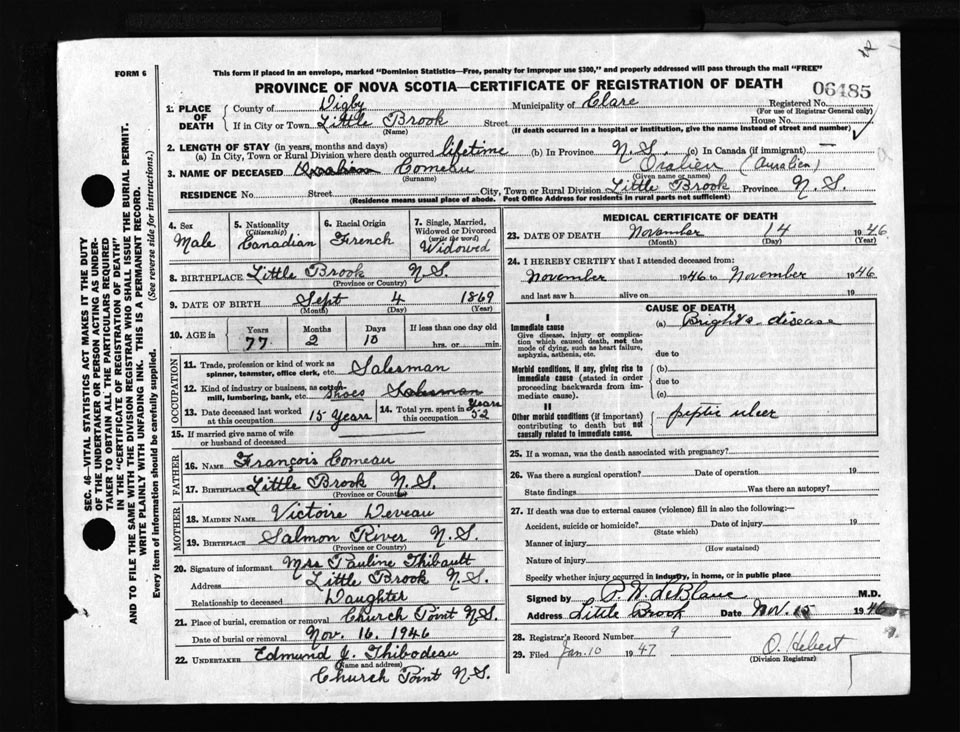 FORM 6
This form if placed in an envelope, marked "Dominion Statistics—Free, penalty for improper use $300," and properly addressed will pass through the mail "FREE"
PROVINCE OF NOVA SCOTIA—CERTIFICATE OF REGISTRATION OF DEATH
06485
1. PLACE OF DEATH
County of Digby Municipality of Clare Registered No.
(For use of Registrar General only)
If in City or Town Little Brook Street House No.
(Name) (If death occurred in a hospital or institution, give the name instead of street and number) ✓
2. LENGTH OF STAY (in years, months and days)
(a) In City, Town or Rural Division where death occurred lifetime (b) In Province N.S. (c) In Canada (if immigrant) —
3. NAME OF DECEASED Comeau Oralien (Auralien)
(Surname) (Given name or names)
RESIDENCE No. Street City, Town or Rural Division Little Brook Province N.S.
(Residence means usual place of abode. Post Office Address for residents in rural parts not sufficient)
4. Sex
Male
5. Nationality
(Citizenship)
Canadian
6. Racial Origin
French
7. Single, Married, Widowed or Divorced
(write the word)
Widowed
8. BIRTHPLACE Little Brook N.S.
(Province or Country)
9. DATE OF BIRTH Sept 4 1869
(Month) (Day) (Year)
10. AGE in
Years Months Days If less than one day old
77 2 10 hrs. or min.
OCCUPATION
11. Trade, profession or kind of work as
spinner, teamster, office clerk, etc. Salesman
12. Kind of industry or business, as cotton-
mill, lumbering, bank, etc. Shoes Salesman
13. Date deceased last worked
at this occupation 15 Years
14. Total yrs. spent in
this occupation 52 Years
15. If married give name of wife
or husband of deceased
FATHER
16. NAME François Comeau
17. BIRTHPLACE Little Brook N.S.
(Province or Country)
MOTHER
18. MAIDEN NAME Victoire Deveau
19. BIRTHPLACE Salmon River N.S.
(Province or Country)
20. Signature of informant Mrs Pauline Thibault
Address Little Brook N.S.
Relationship to deceased Daughter
21. Place of burial, cremation or removal Church Point N.S.
Date of burial or removal Nov. 16. 1946
22. UNDERTAKER Edmund J. Thibodeau
(Name and address)
Church Point N.S.
MEDICAL CERTIFICATE OF DEATH
23. DATE OF DEATH November 14 1946
(Month) (Day) (Year)
24. I HEREBY CERTIFY that I attended deceased from:
November 1946 to November 1946
and last saw h alive on 19
CAUSE OF DEATH
I
Immediate cause
Give disease, injury or complica-
tion which caused death, not the
mode of dying, such as heart failure,
asphyxia, asthenia, etc.
(a) Bright's disease
due to
Morbid conditions, if any, giving rise to
immediate cause (stated in order
proceeding backwards from im-
mediate cause).
(b)
due to
(c)
II
Other morbid conditions (if important)
contributing to death but not
causally related to immediate cause.
peptic ulcer
25. If a woman, was the death associated with pregnancy?
26. Was there a surgical operation? Date of operation 19
State findings Was there an autopsy?
27. If death was due to external causes (violence) fill in also the following:—
Accident, suicide or homicide? Date of injury 19
(State which)
Manner of injury
(How sustained)
Nature of injury
Specify whether injury occurred in industry, in home, or in public place
Signed by P. W. LeBlanc M.D.
Address Little Brook Date Nov. 15 1946
28. Registrar's Record Number 9
29. Filed Jan. 10 1947 O. Hebert
(Division Registrar)
SEC. 46—VITAL STATISTICS ACT MAKES IT THE DUTY
OF THE UNDERTAKER OR PERSON ACTING AS UNDER-
TAKER TO OBTAIN ALL THE PARTICULARS REQUIRED
IN THE "CERTIFICATE OF REGISTRATION OF DEATH"
AND TO FILE THE SAME WITH THE DIVISION REGISTRAR WHO SHALL ISSUE THE BURIAL PERMIT.
WRITE PLAINLY WITH UNFADING INK. THIS IS A PERMANENT RECORD.
Every item of Information should be carefully supplied. (See reverse side for instructions.)